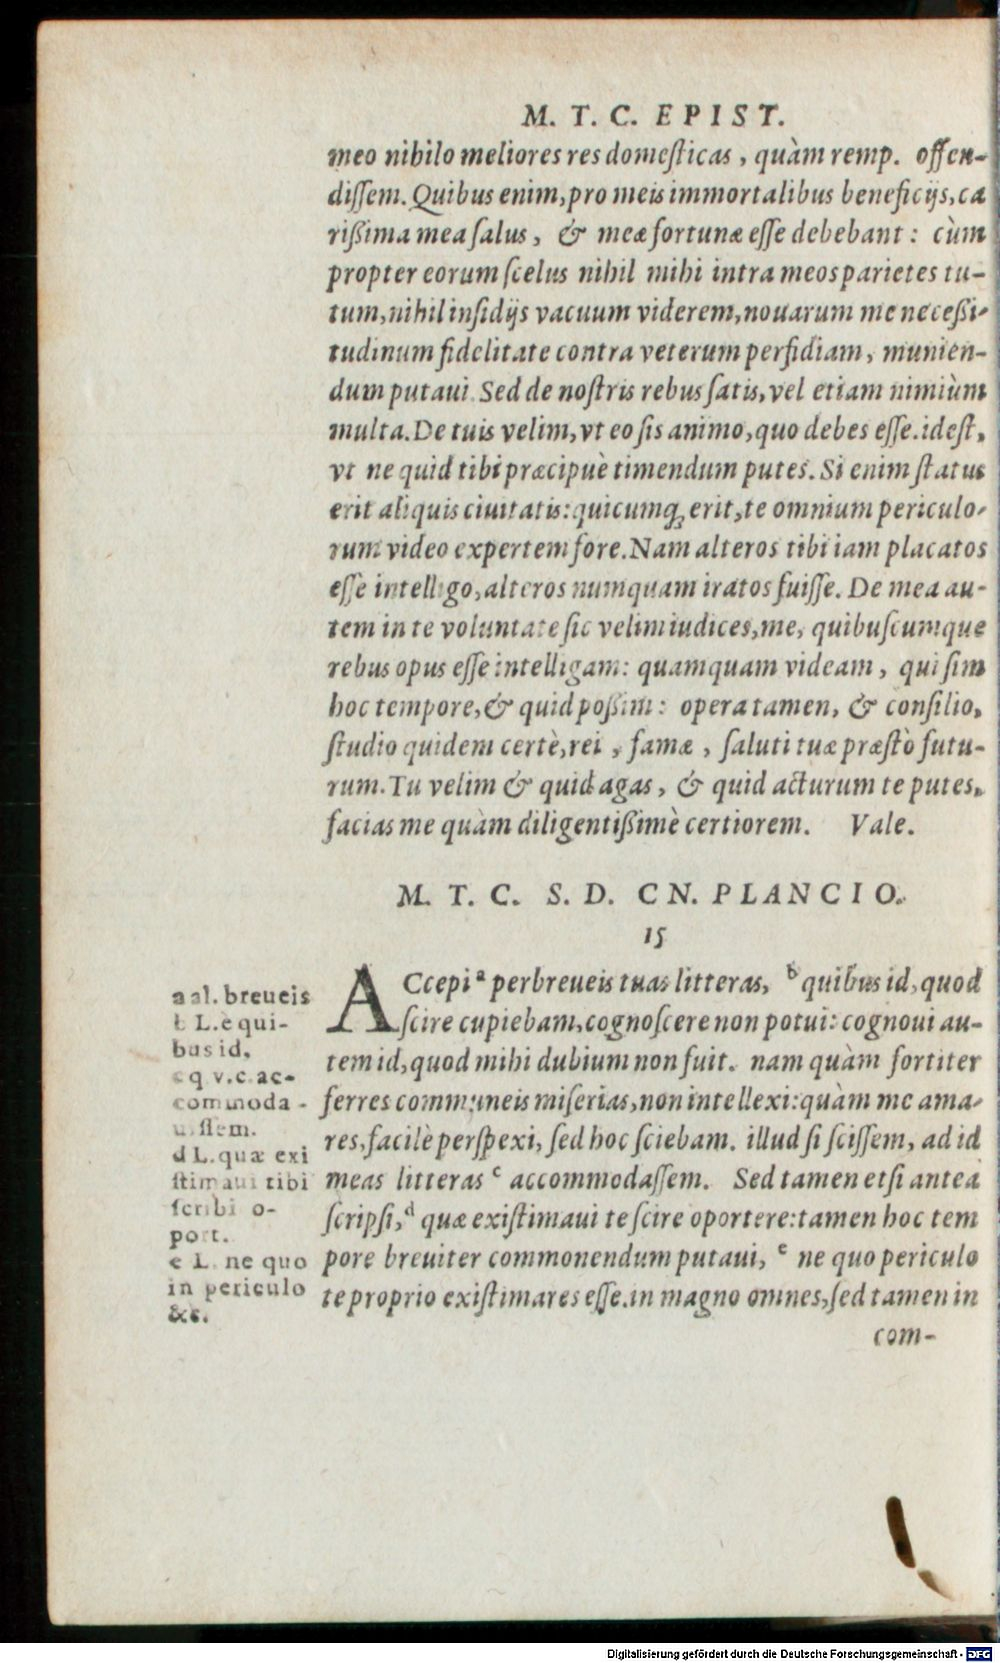 M. T. C. EPIST.
meo nihilo meliores res domeſticas, quàm remp. offen-
diſſem. Quibus enim, pro meis immortalibus beneficijs, ca
rißima mea ſalus, & meæ fortunæ eſſe debebant: cùm
propter eorum ſcelus nihil mihi intra meos parietes tu-
tum, nihil inſidijs vacuum viderem, nouarum me neceßi-
tudinum fidelitate contra veterum perfidiam, munien-
dum putaui. Sed de noſtris rebus ſatis, vel etiam nimiùm
multa. De tuis velim, vt eo ſis animo, quo debes eſſe. ideſt,
vt ne quid tibi præcipuè timendum putes. Si enim ſtatus
erit aliquis ciuitatis: quicumq; erit, te omnium periculo-
rum video expertem fore. Nam alteros tibi iam placatos
eſſe intelligo, alteros numquam iratos fuiſſe. De mea au-
tem in te voluntate ſic velim iudices, me, quibuſcumque
rebus opus eſſe intelligam: quamquam videam, qui ſim
hoc tempore, & quid poßim: opera tamen, & conſilio,
ſtudio quidem certè, rei, famæ, ſaluti tuæ præſtò futu-
rum. Tu velim & quid agas, & quid acturum te putes,
facias me quàm diligentißimè certiorem. Vale.
M. T. C. S. D. CN. PLANCIO.
15
ACcepi a perbreueis tuas litteras, b quibus id, quod
ſcire cupiebam, cognoſcere non potui: cognoui au-
tem id, quod mihi dubium non fuit. nam quàm fortiter
ferres communeis miſerias, non intellexi: quàm me ama-
res, facilè perſpexi, ſed hoc ſciebam. illud ſi ſciſſem, ad id
meas litteras c accommodaſſem. Sed tamen etſi antea
ſcripſi, d quæ exiſtimaui te ſcire oportere: tamen hoc tem
pore breuiter commonendum putaui, e ne quo periculo
te proprio exiſtimares eſſe. in magno omnes, ſed tamen in
com-
a al. breueis
b L. è qui-
bus id.
c q v. c. ac-
commoda-
uiſſem.
d L. quæ exi
ſtimaui tibi
ſcribi o-
port.
e L. ne quo
in periculo
&c.
Digitalisierung gefördert durch die Deutsche Forschungsgemeinschaft - DFG